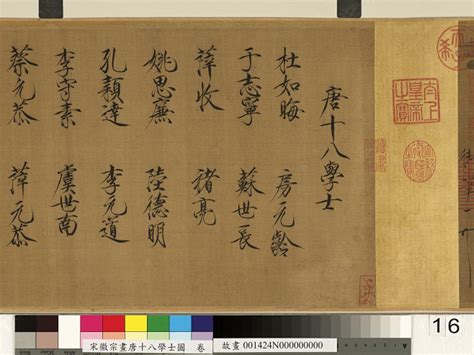 唐十八學士
杜如晦 房元齡
于志寧 蘇世長
薛收 褚亮
姚思廉 陸德明
孔穎達 李元道
李守素 虞世南
蔡元恭 薛元恭
宋徽宗畫唐十八學士圖 卷
故畫 001424N000000000
16